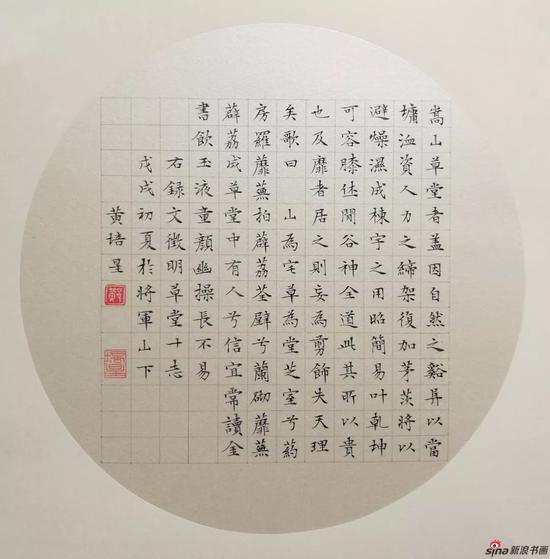 嵩山草堂者盖因自然之谿以當
墉洫資人力之締架復加茅茨將以
避燥濕成棟宇之用昭簡易叶乾坤
可容膝休閒谷神全道此其所以貴
也及靡者居之則妄為剪飾失天理
矣歌曰 山為宅草為堂芝室兮葯
房羅蘼蕪拍薜荔荃壁兮蘭砌蘼蕪
薜荔成草堂中有人兮信宜常讀金
書飲玉液童顏幽操長不易
右録文徵明草堂十志
戊戌初夏於將軍山下
黄培星
sina新浪书画